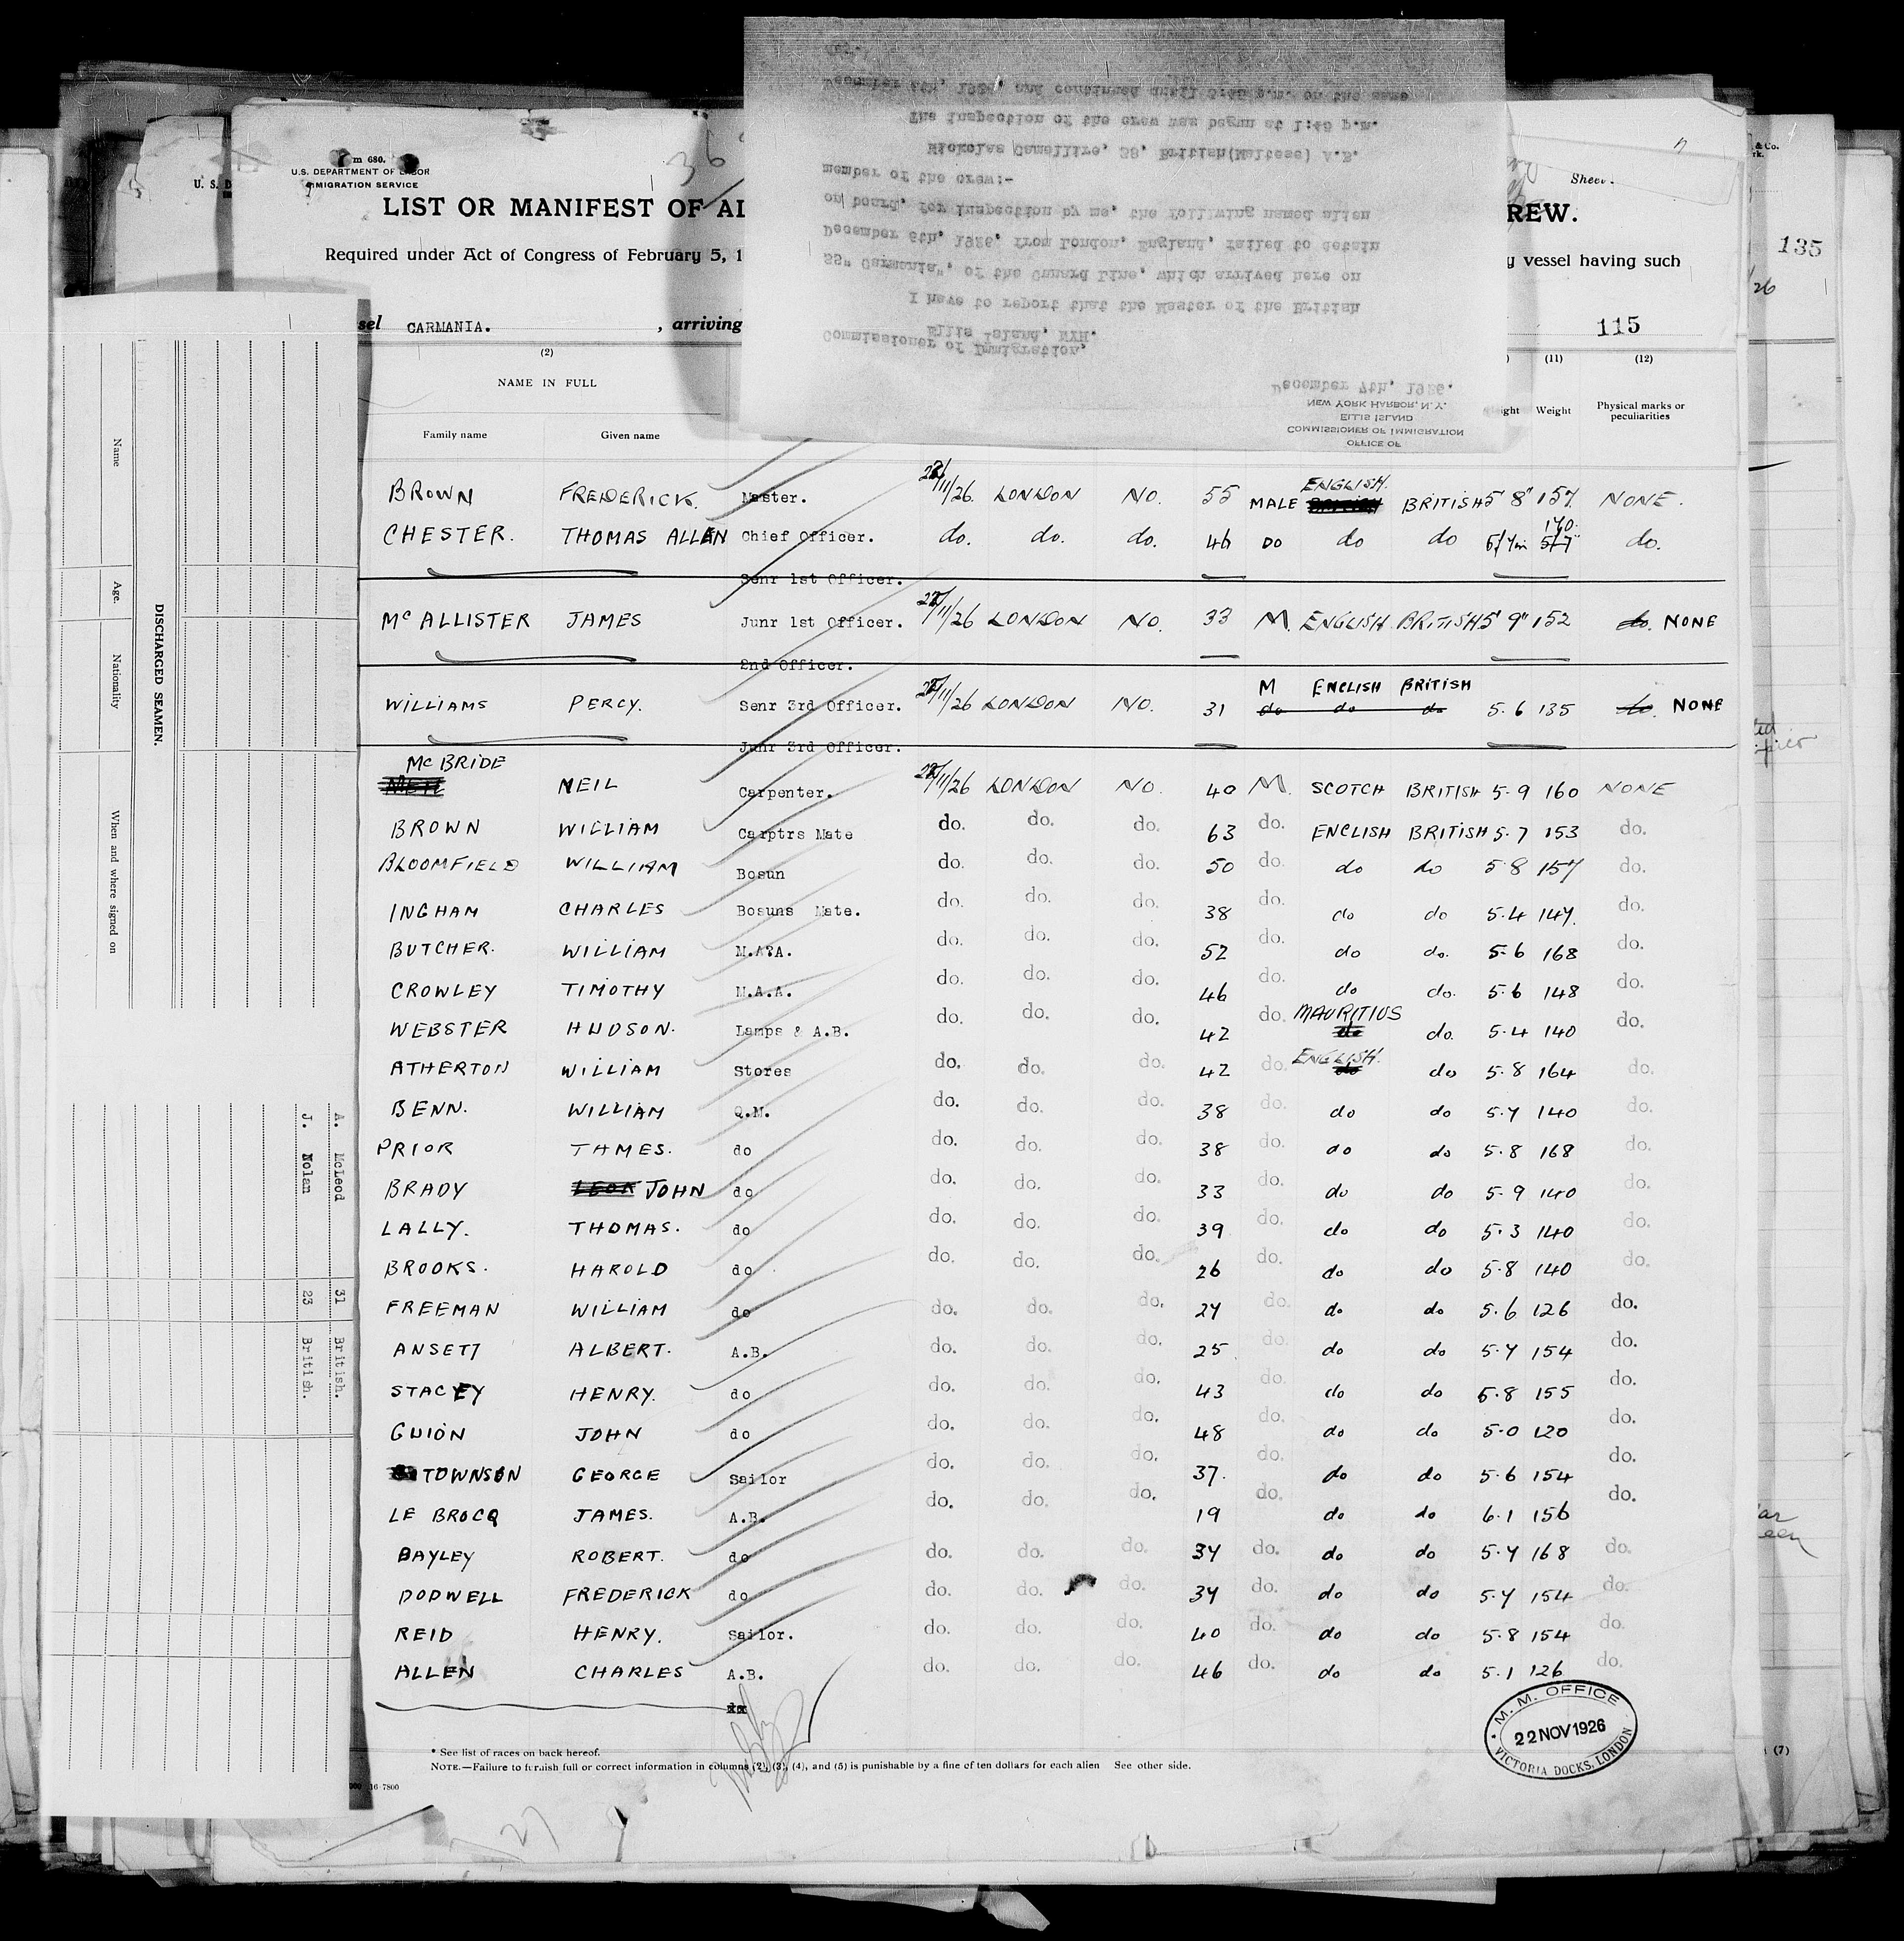 Form 680.
U.S. DEPARTMENT OF LABOR
IMMIGRATION SERVICE
Sheet
LIST OR MANIFEST OF AL
REW.
Required under Act of Congress of February 5, 1
y vessel having such
sel CARMANIA. , arriving
115
135
OFFICE OF
COMMISSIONER OF IMMIGRATION
ELLIS ISLAND
NEW YORK HARBOR, N.Y.
December 7th, 1926.
Commissioner of Immigration,
Ellis Island, NYH.
I have to report that the Master of the British
SS" Carmania", of the Cunard Line, which arrived here on
December 6th, 1926, from London, England, failed to detain
on board, for inspection by me, the following named alien
member of the crew:-
British(Maltese) A.B.
The inspection of the crew was begun at 1:45 p.m.
and continued until p.m. on the same
(2) (11) (12)
NAME IN FULL
Family name Given name
ight Weight Physical marks or peculiarities
BROWN FREDERICK. Master. /11/26. LONDON NO. 55 MALE ENGLISH. BRITISH 5' 8" 157. NONE.
CHESTER. THOMAS ALLEN Chief Officer. do. do. do. 46 DO do do 170. do.
Senr 1st Officer.
McALLISTER JAMES Junr 1st Officer. /11/26 LONDON NO. 33 M. ENGLISH. BRITISH 5' 9" 152 do. NONE
2nd Officer.
M ENGLISH BRITISH
WILLIAMS PERCY. Senr 3rd Officer. /11/26 LONDON NO. 31 do do do 5.6 135 do. NONE
Junr 3rd Officer.
McBRIDE NEIL Carpenter. /11/26 LONDON NO. 40 M. SCOTCH BRITISH 5.9 160 NONE
BROWN WILLIAM Carptrs Mate do. do. do. 63 do. ENGLISH BRITISH 5.7 153 do.
BLOOMFIELD WILLIAM Bosun do. do. do. 50 do. do do 5 8 157 do.
INGHAM CHARLES Bosuns Mate. do. do. do. 38 do. do do 5.4 147. do.
BUTCHER. WILLIAM M.A.A. do. do. do. 52 do. do do. 5.6 168 do.
CROWLEY TIMOTHY M.A.A. do. do. do. 46 do. do do. 5.6 148 do.
WEBSTER HUDSON. Lamps & A.B. do. do. do. 42 do. MAURITIUS do. 5.4 140 do.
ATHERTON WILLIAM Stores do. do. do. 42 do. ENGLISH. do 5.8 164 do.
BENN. WILLIAM Q.M. do. do. do. 38 do. do do 5.7 140 do.
PRIOR JAMES. do do. do. do. 38 do. do do 5.8 168 do.
BRADY JOHN do do. do. do. 33 do. do do 5.9 140 do.
LALLY. THOMAS. do do. do. do. 39 do. do do 5.3 140 do.
BROOKS. HAROLD do do. do. do. 26 do. do do 5.8 140 do.
FREEMAN WILLIAM do do. do. do. 27 do. do do 5.6 126 do.
ANSETT ALBERT. A.B. do. do. do. 25 do. do do 5.7 154 do.
STACEY HENRY. do do. do. do. 43 do. do do 5.8 155 do.
GUION JOHN do do. do. do. 48 do. do do 5.0 120 do.
TOWNSON GEORGE Sailor do. do. do. 37. do. do do 5.6 154 do.
LE BROCQ JAMES. A.B. do. do. do. 19 do. do do 6.1 156 do.
BAYLEY ROBERT. do do. do. do. 37 do. do do 5.7 168 do.
DODWELL FREDERICK do do. do. do. 37 do. do do 5.7 154 do.
REID HENRY. Sailor. do. do. do. 40 do. do do 5.8 154 do.
ALLEN CHARLES A.B. do. do. do. 46 do. do do 5.1 126 do.
* See list of races on back hereof.
NOTE.—Failure to furnish full or correct information in columns (2), (3), (4), and (5) is punishable by a fine of ten dollars for each alien See other side.
16-7800
M. M. OFFICE
22 NOV 1926
VICTORIA DOCKS, LONDON
DISCHARGED SEAMEN.
Name Age. Nationality When and where signed on
A. McLeod 31 British.
J. Nolan 23 British.
27
(7)